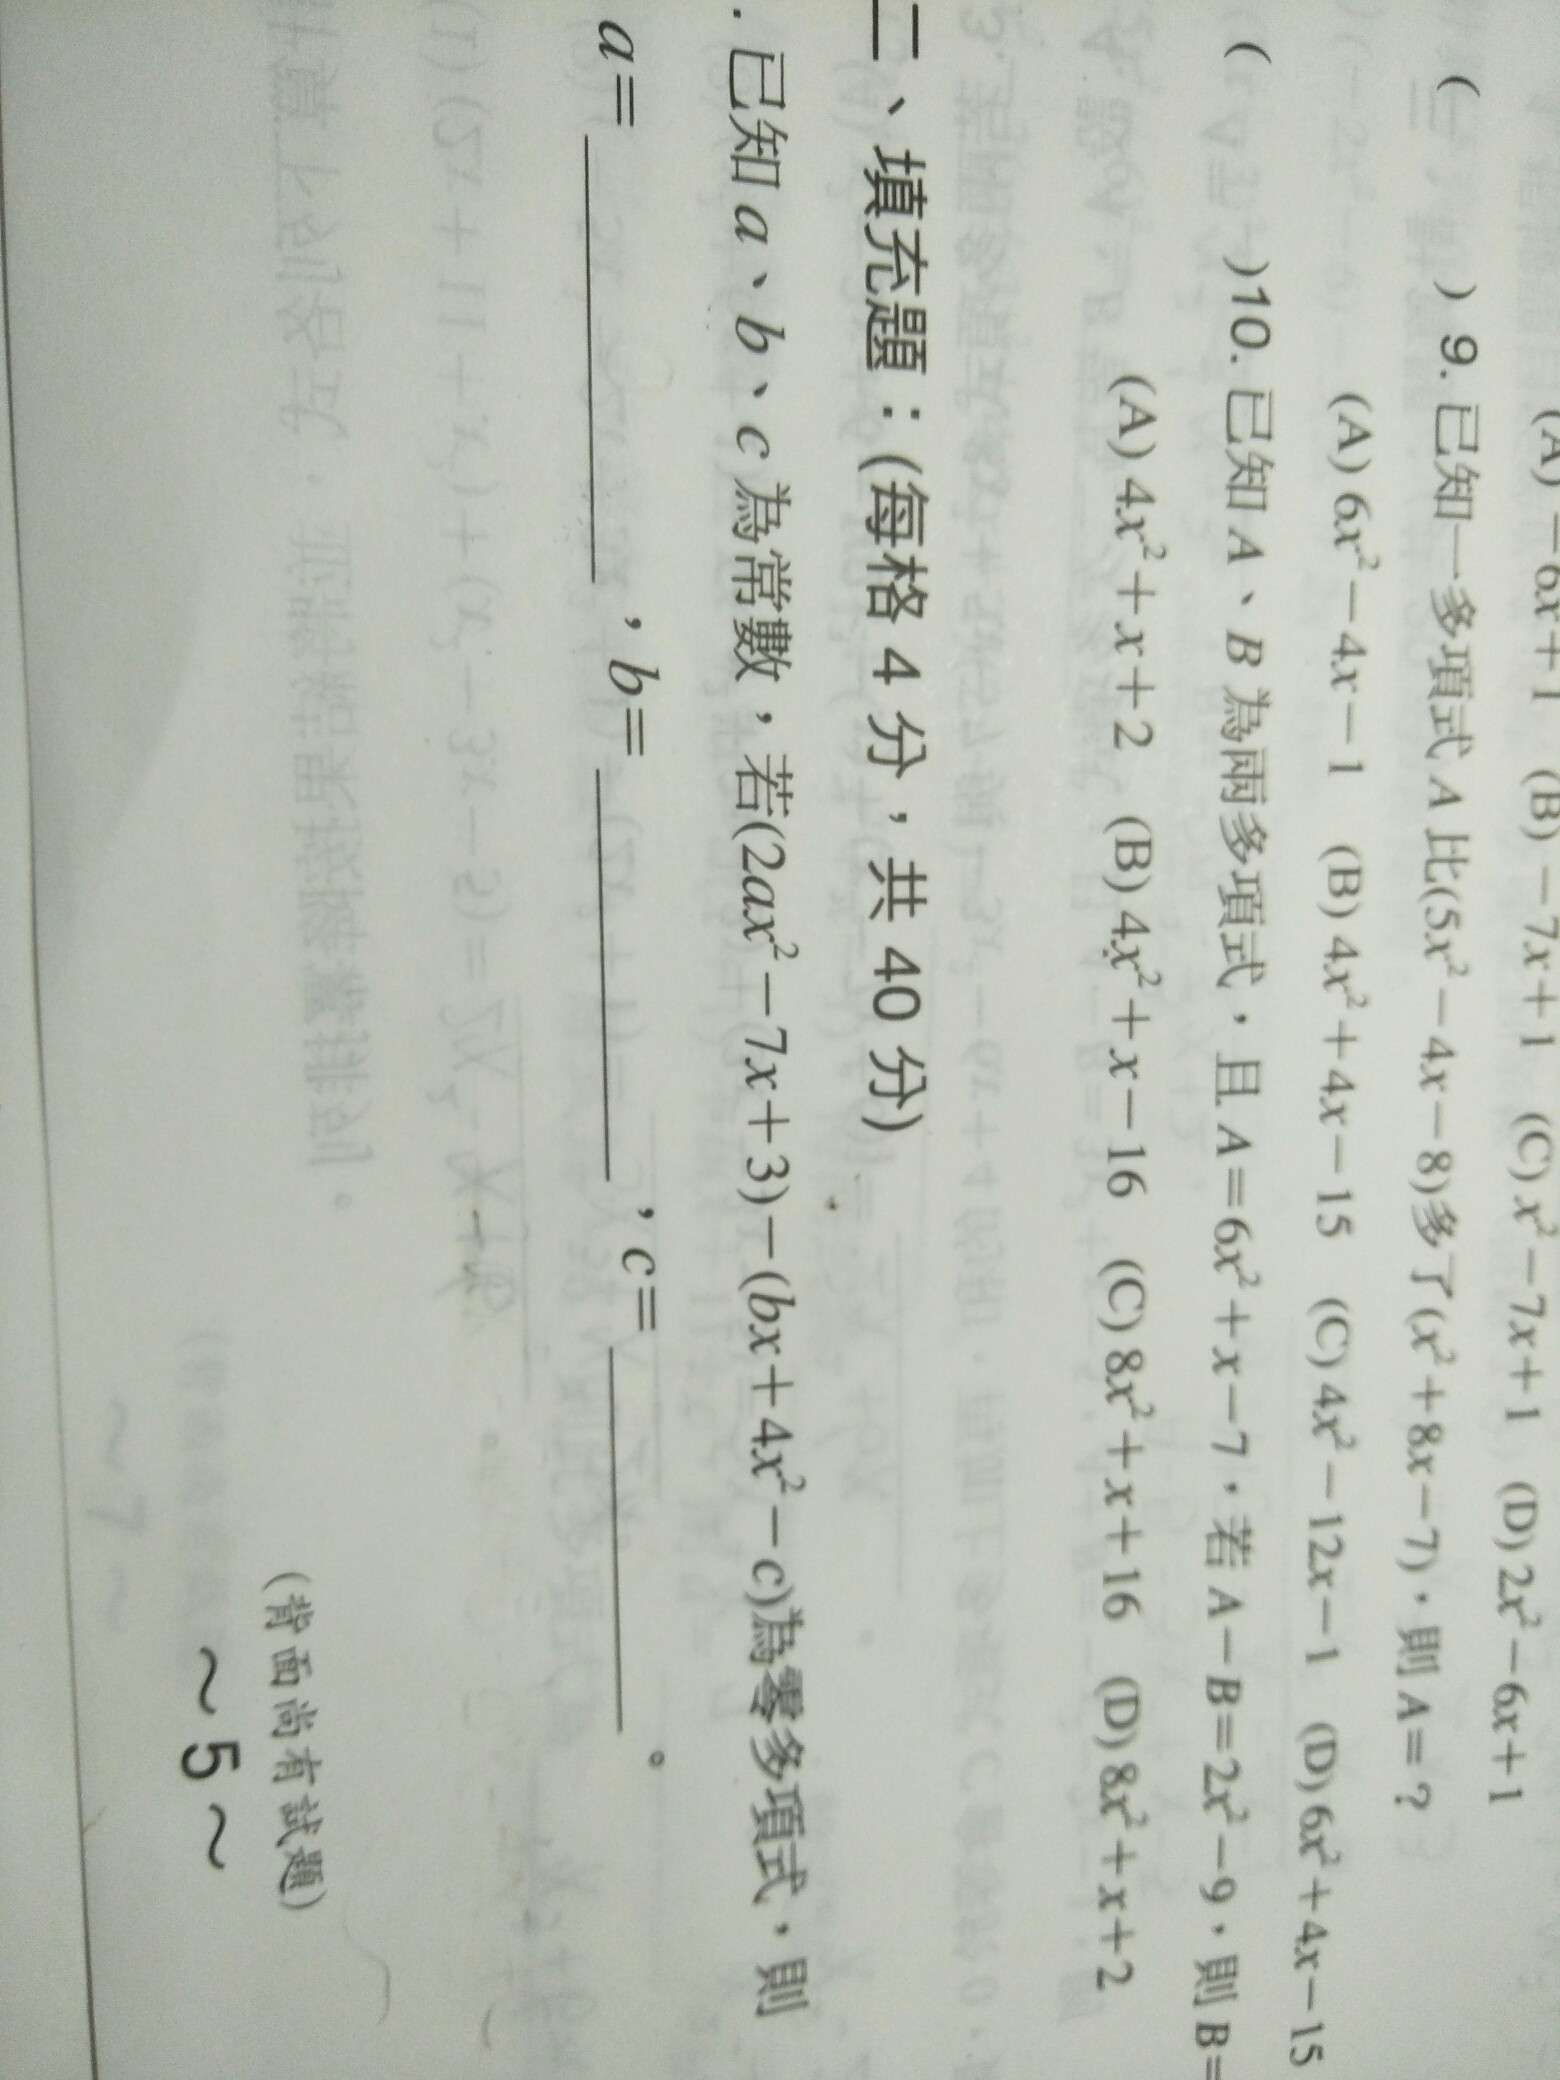 (A) －6x＋1 (B) －7x＋1 (C) x²－7x＋1 (D) 2x²－6x＋1
( ) 9. 已知一多項式 A 比(5x²－4x－8)多了(x²＋8x－7)，則 A＝？
(A) 6x²－4x－1 (B) 4x²＋4x－15 (C) 4x²－12x－1 (D) 6x²＋4x－15
( )10. 已知 A、B 為兩多項式，且 A＝6x²＋x－7，若 A－B＝2x²－9，則 B＝
(A) 4x²＋x＋2 (B) 4x²＋x－16 (C) 8x²＋x＋16 (D) 8x²＋x＋2
二、填充題：(每格 4 分，共 40 分)
. 已知 a、b、c 為常數，若(2ax²－7x＋3)－(bx＋4x²－c)為零多項式，則
a＝＿＿＿＿，b＝＿＿＿＿，c＝＿＿＿＿。
(背面尚有試題)
～5～